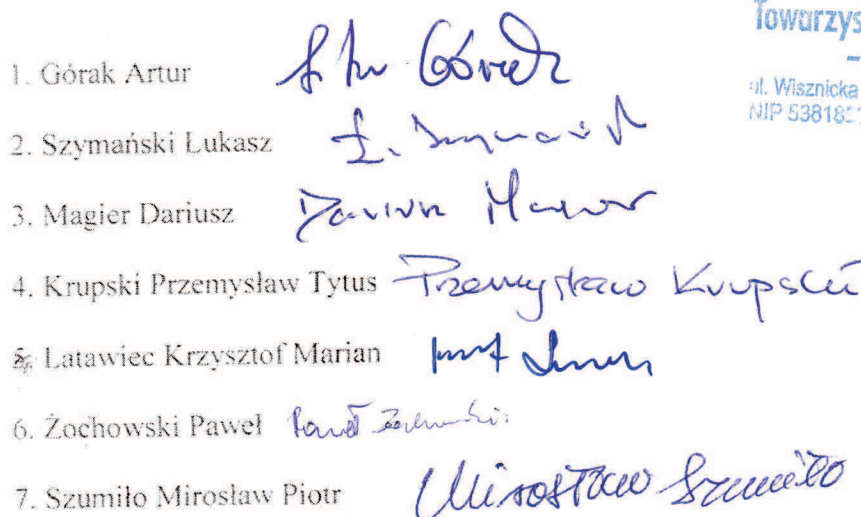 Towarzys
ul. Wisznicka
NIP 53818
1. Górak Artur Górak
2. Szymański Lukasz Ł. Szymański
3. Magier Dariusz Dariusz Magier
4. Krupski Przemysław Tytus Przemysław Krupski
5. Latawiec Krzysztof Marian
6. Żochowski Paweł Paweł Żochowski
7. Szumiło Mirosław Piotr Mirosław Szumiło